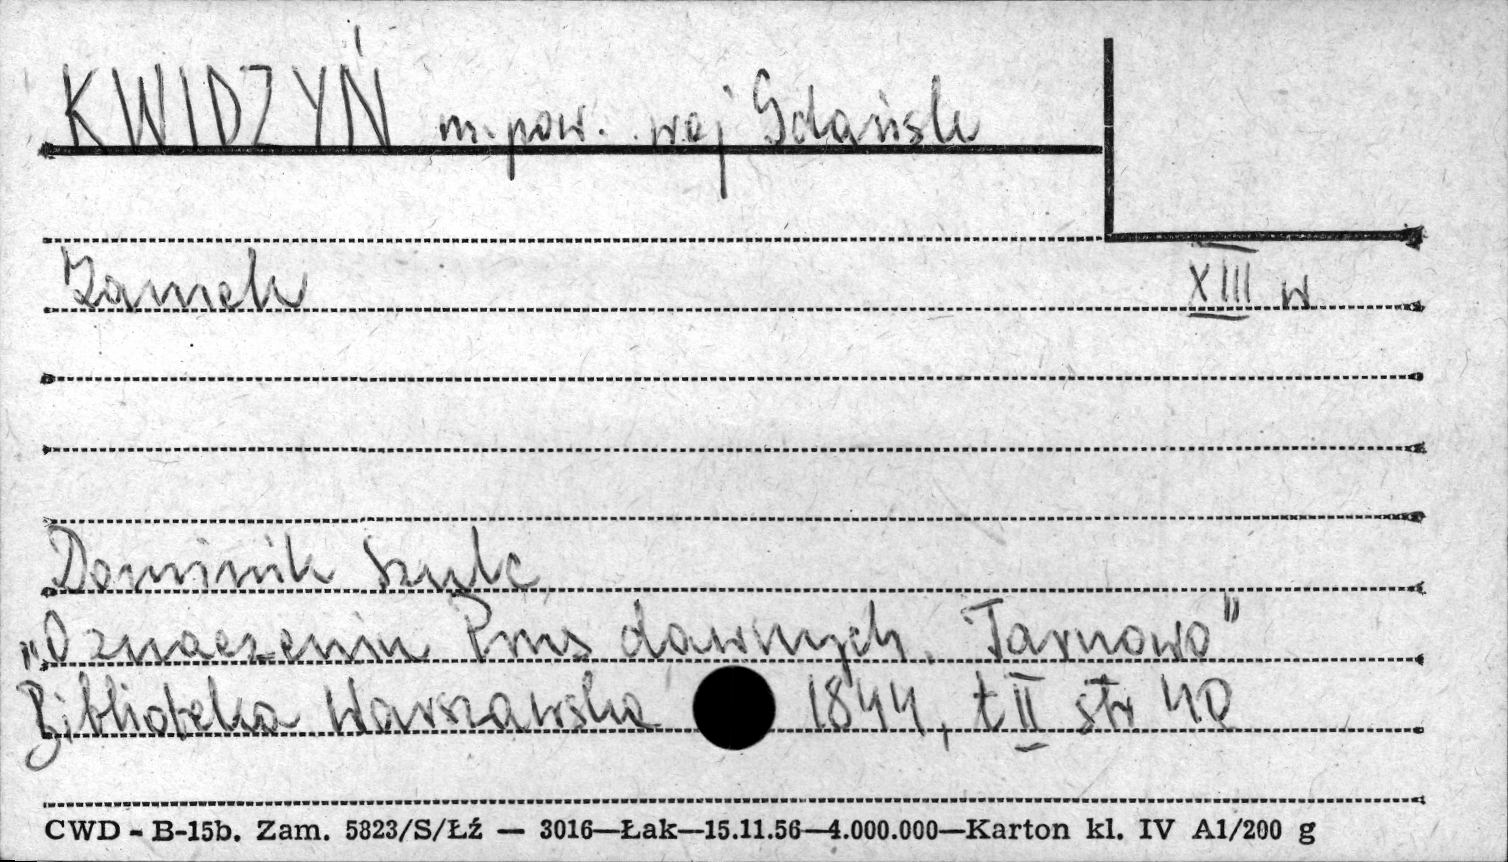 KWIDZYŃ m. pow. woj Gdańsk
Zamek XIII w
Dominik Szulc
„O znaczeniu Prus dawnych. Tarnowo”
Biblioteka Warszawska 1844, t II str 40
CWD - B-15b. Zam. 5823/S/Łź — 3016—Łak—15.11.56—4.000.000—Karton kl. IV A1/200 g